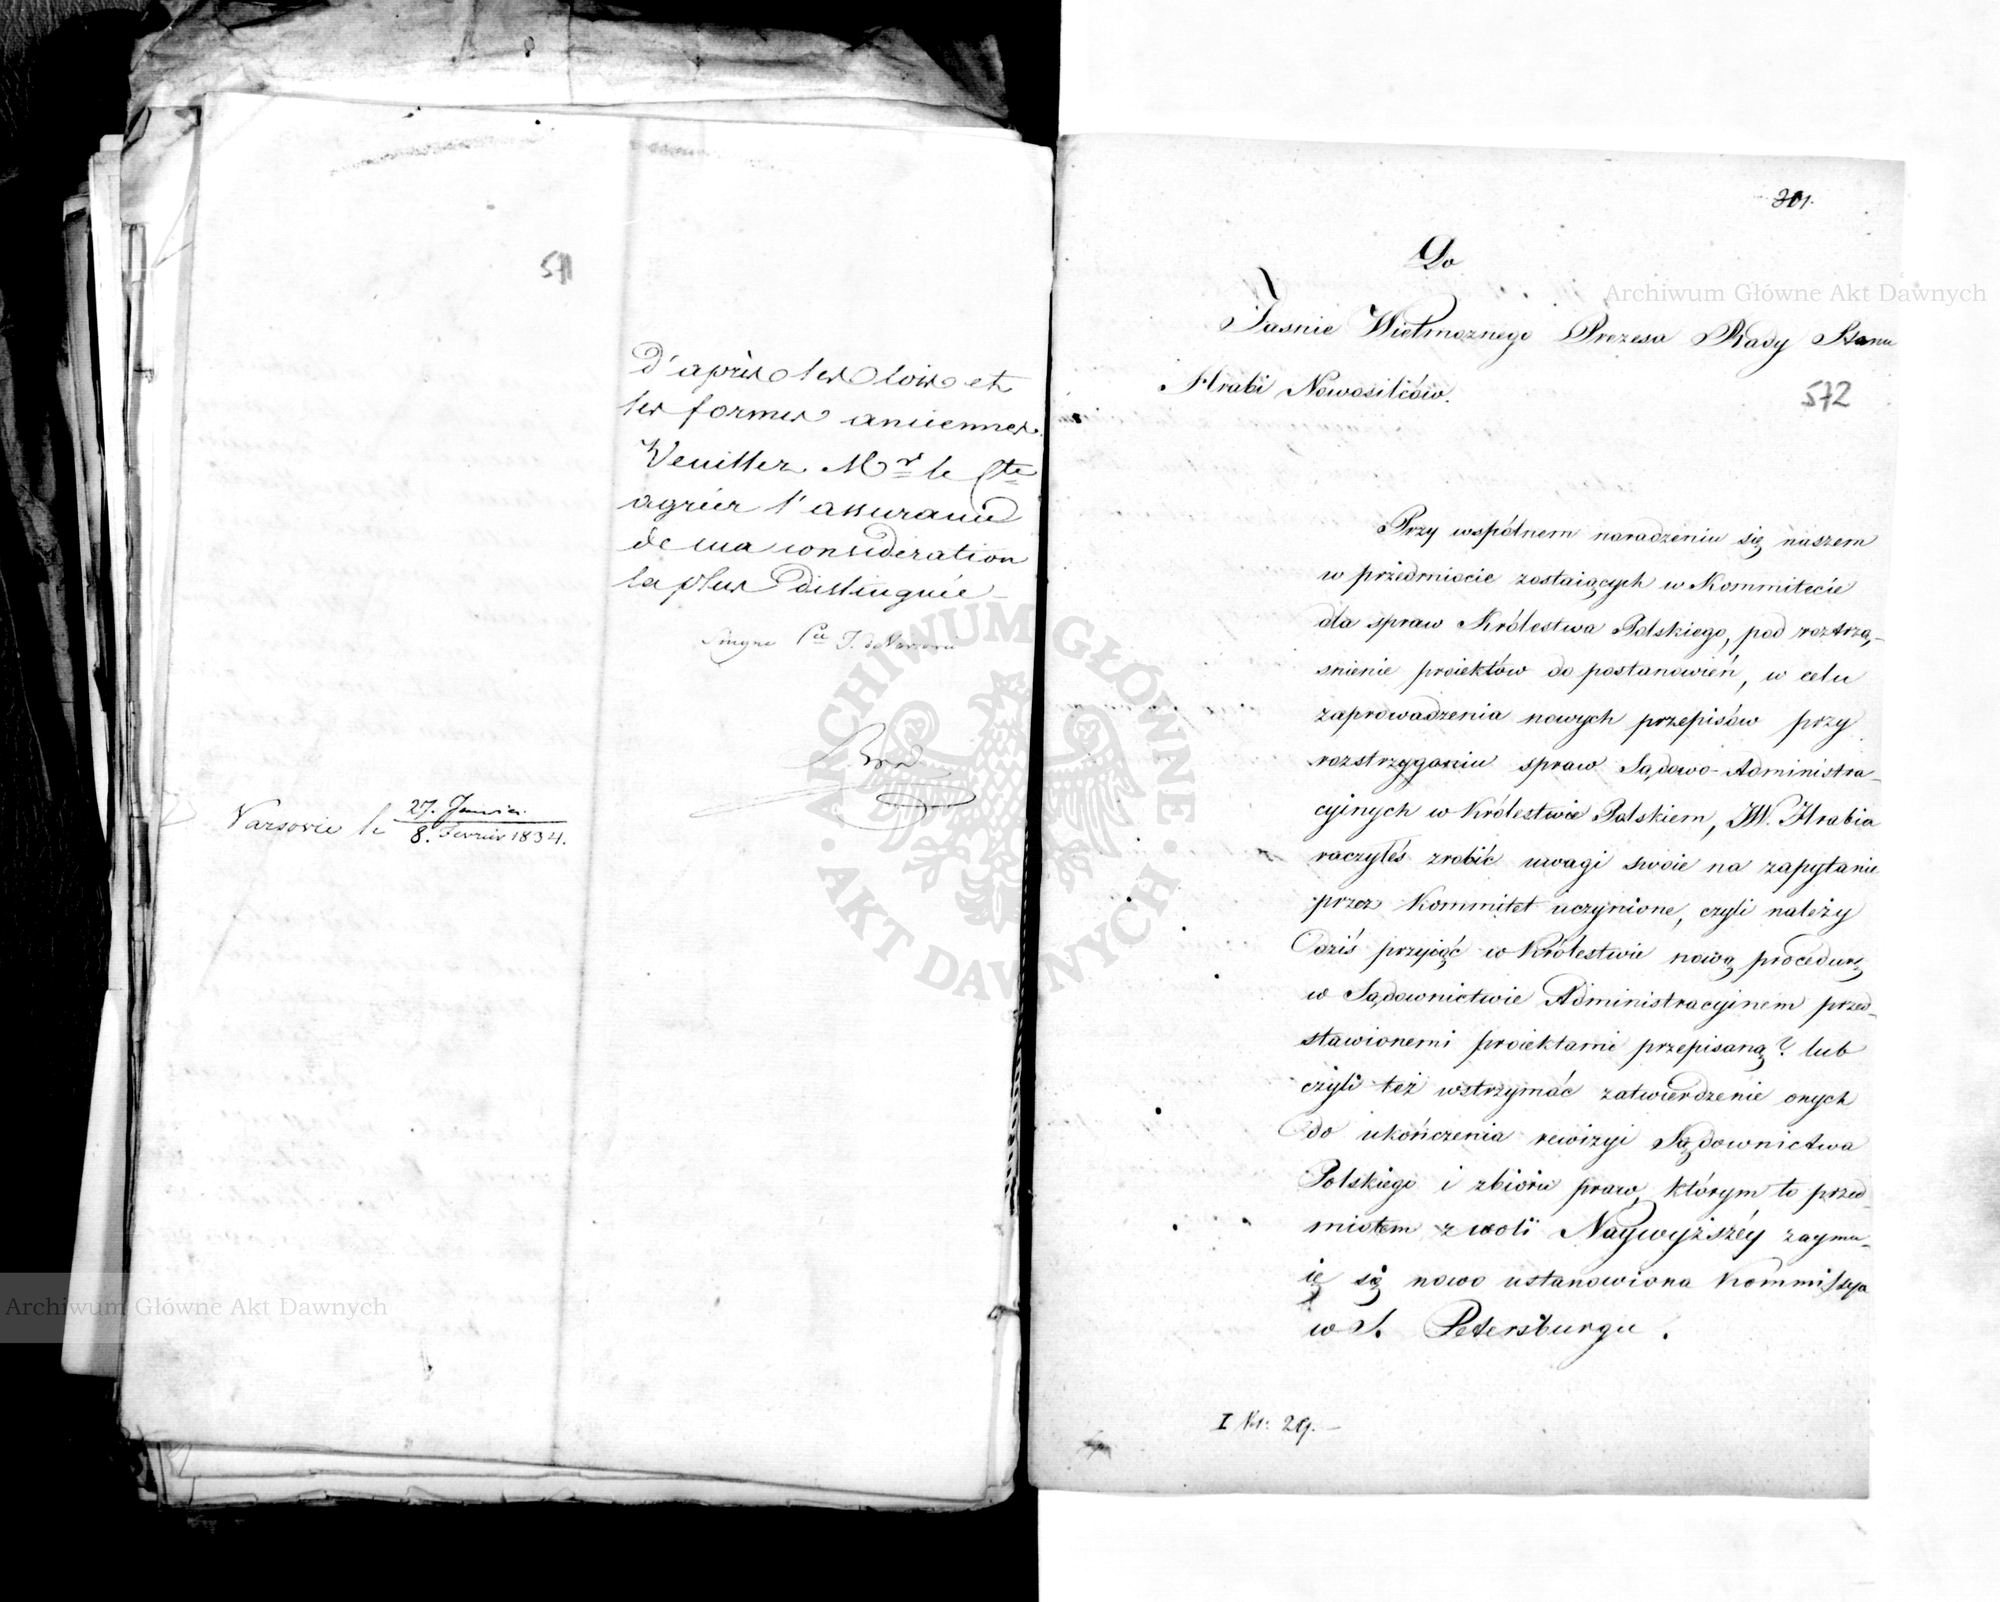 571
d'après les lois et
les formes anciennes.
Veuillez Mr le Cte
agréer l'assurance
de ma considération
la plus distinguée
Varsovie le 27. Janvier
8. Fevrier 1834.
301.
Do
Jasnie Wielmoznego Prezesa Rady Stanu
Hrabi Nowosilców.
572
Przy wspólnem naradzeniu się naszem
w przedmiocie zostaiących w Kommitecie
dla spraw Królestwa Polskiego, pod roztrzą-
snienie proiektów do postanowień, w celu
zaprowadzenia nowych przepisów przy
rozstrzyganiu spraw Sądowo-Administra-
cyjnych w Królestwie Polskiem, JW. Hrabia
raczyłeś zrobić uwagi swoie na zapytanie
przez Kommitet uczynione, czyli należy
dziś przyiąć w Królestwie nową procedurę
w Sądownictwie Administracyinem przed-
stawionemi proiektami przepisaną? lub
czyli też wstrzymać zatwierdzenie onych
do ukończenia rewizyi Sądownictwa
Polskiego i zbioru praw, którym to przed-
miotem z woli Naywyższéy zaymu-
ie się nowo ustanowiona Kommissya
w S. Petersburgu.
I Nr: 29.—
Archiwum Główne Akt Dawnych
Archiwum Główne Akt Dawnych
ARCHIWUM GŁÓWNE
AKT DAWNYCH